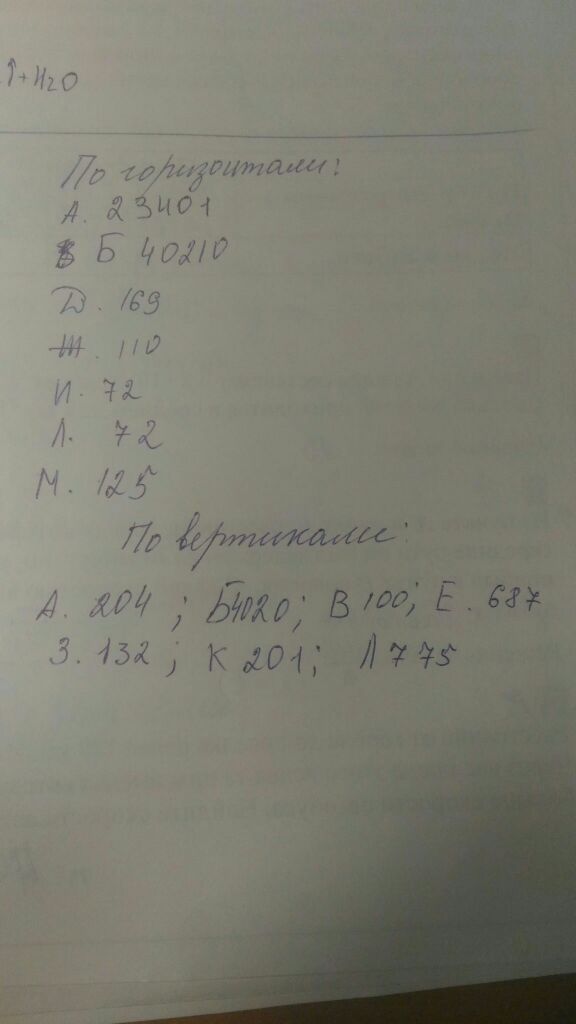 ↑+H₂O
По горизонтали:
А. 23401
Б 40210
Д. 169
Ж. 110
И. 72
Л. 72
М. 125
По вертикали:
А. 204 ; Б4020; В 100; Е. 687
З. 132 ; К 201; Л 775